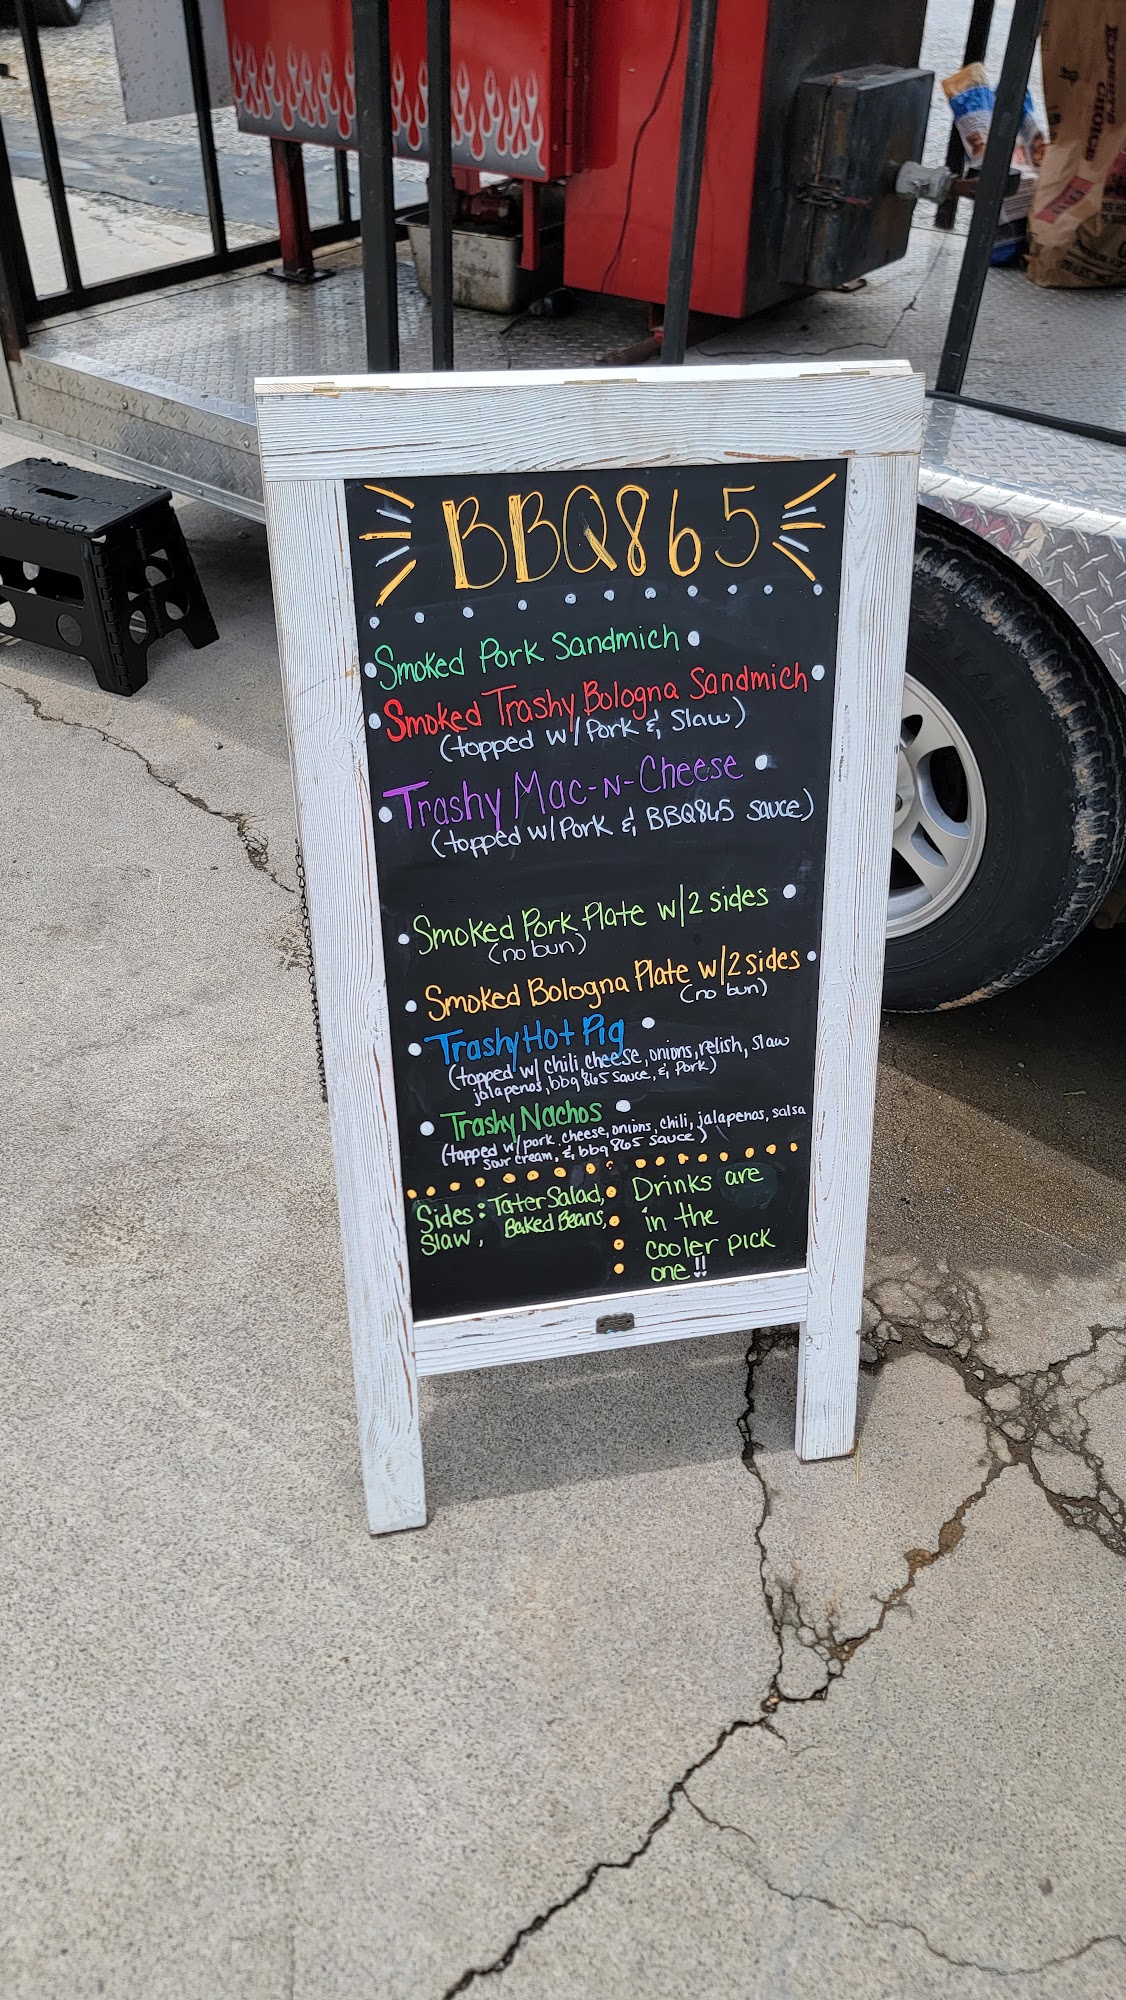 BBQ865
Smoked Pork Sandwich
Smoked Trashy Bologna Sandwich
(topped w/Pork & Slaw)
Trashy Mac-N-Cheese
(topped w/Pork & BBQ865 sauce)
Smoked Pork Plate w/2 sides
(no bun)
Smoked Bologna Plate w/2 sides
(no bun)
Trashy Hot Pig
(topped w/ chili, cheese, onions, relish, slaw
jalapenos, bbq 865 sauce, & Pork)
Trashy Nachos
(topped w/pork, cheese, onions, chili, jalapenos, salsa
sour cream, & bbq 865 sauce)
Sides: Tater Salad,
Slaw, Baked Beans,
Drinks are
in the
cooler pick
one!!
CHOICE